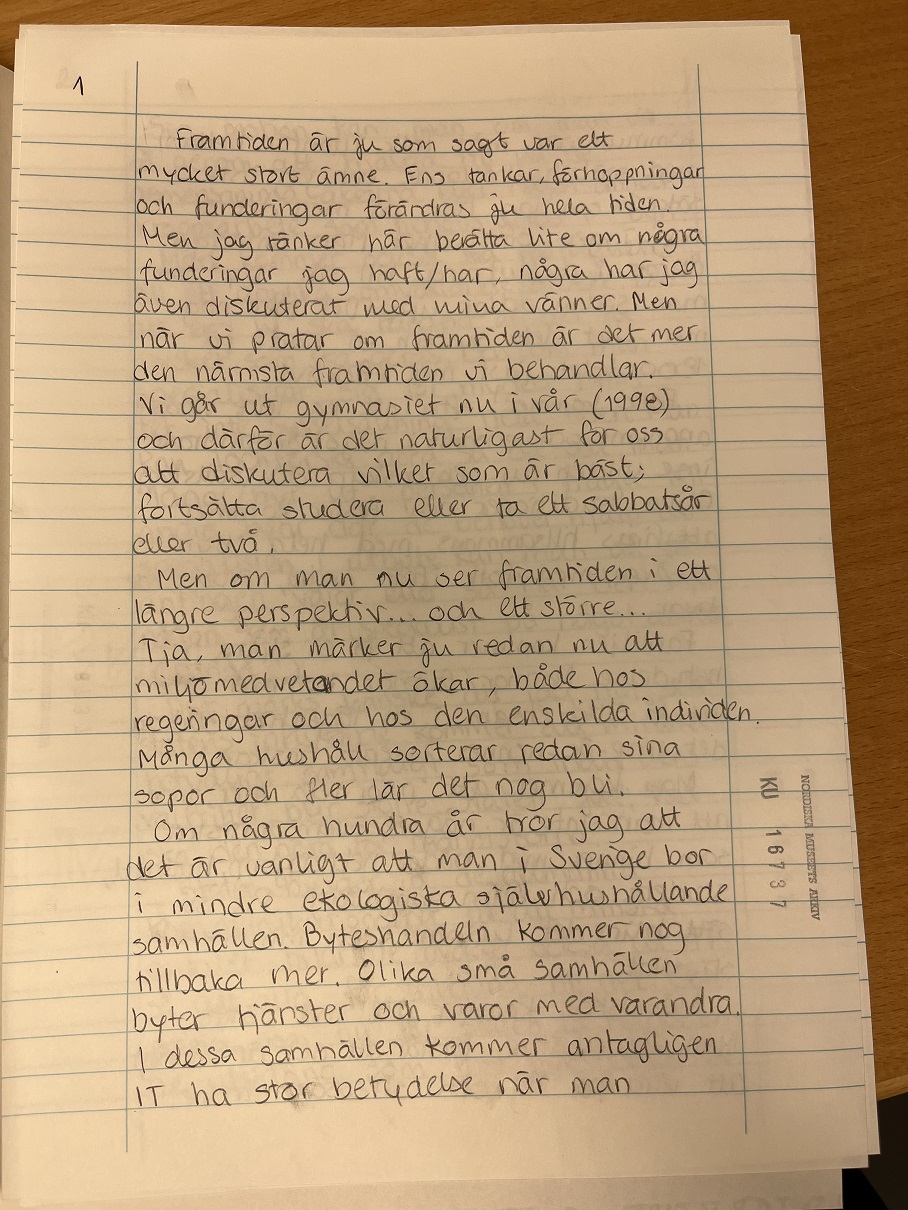 1
Framtiden är ju som sagt var ett
mycket stort ämne. Ens tankar, förhoppningar
och funderingar förändras ju hela tiden.
Men jag tänker här berätta lite om några
funderingar jag haft/har, några har jag
även diskuterat med mina vänner. Men
när vi pratar om framtiden är det mer
den närmsta framtiden vi behandlar.
Vi går ut gymnasiet nu i vår (1998)
och därför är det naturligast för oss
att diskutera vilket som är bäst;
fortsätta studera eller ta ett sabbatsår
eller två.
Men om man nu ser framtiden i ett
längre perspektiv... och ett större...
Tja, man märker ju redan nu att
miljömedvetandet ökar, både hos
regeringar och hos den enskilda individen.
Många hushåll sorterar redan sina
sopor och fler lär det nog bli.
Om några hundra år tror jag att
det är vanligt att man i Sverige bor
i mindre ekologiska självhushållande
samhällen. Byteshandeln kommer nog
tillbaka mer. Olika små samhällen
byter tjänster och varor med varandra.
I dessa samhällen kommer antagligen
IT ha stor betydelse när man
NORDISKA MUSEETS ARKIV
KU 16737